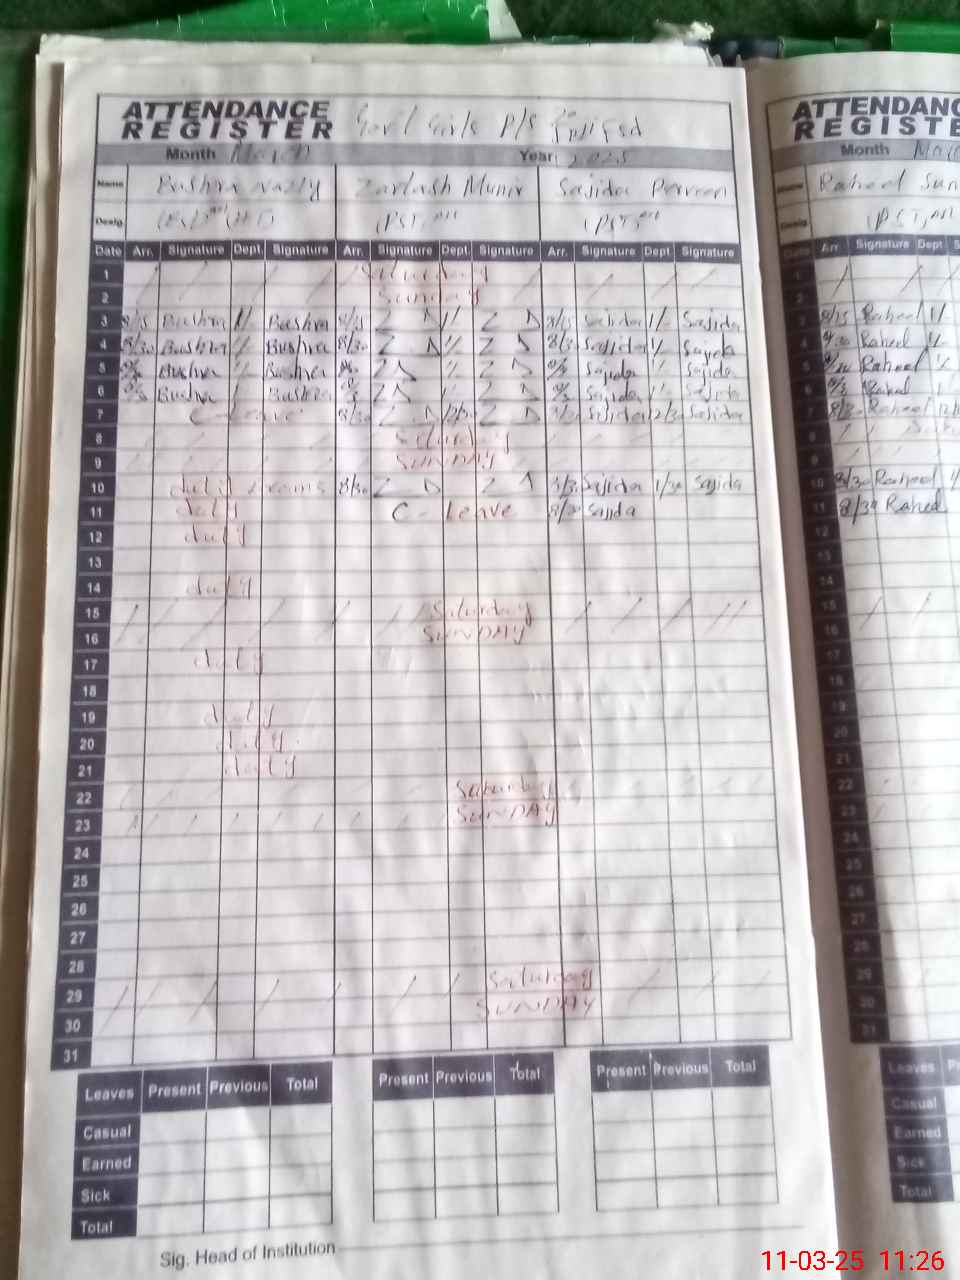 ATTENDANCE REGISTER Govt Girls P/S
Month March Year 2025
Name Bushra Nazly Zarlash Munir Sajida Perveen
Desig. (PST) (PST)
Date Arr. Signature Dept. Signature Arr. Signature Dept. Signature Arr. Signature Dept. Signature
1 Saturday
2 Sunday
3 8/15 Bushra 1/- Bushra 8/15 1/- 8/15 Sajida 1/- Sajida
4 8/30 Bushra 1/- Bushra 8/30 1/- 8/30 Sajida 1/- Sajida
5 Bushra 1/- Bushra 1/- Sajida 1/- Sajida
6 Bushra 1/- Bushra 1/- Sajida 1/- Sajida
7 C-Leave 8/30 12/30 Sajida 12/30 Sajida
8 Saturday
9 SUNDAY
10 duty exams 8/30 Sajida 1/30 Sajida
11 duty C-Leave 8/30 Sajida
12 duty
13
14 duty
15 Saturday
16 SUNDAY
17 duty
18
19 duty
20 duty
21 duty
22 Saturday
23 SUNDAY
24
25
26
27
28
29 Saturday
30 SUNDAY
31
Leaves Present Previous Total Present Previous Total Present Previous Total
Casual
Earned
Sick
Total
Sig. Head of Institution
ATTENDANC
REGISTE
Month
Name Raheel
Desig. (PST)
Date Arr. Signature Dept
1
2
3 8/15 Raheel 1/-
4 8/30 Raheel 1/-
5 Raheel
6 Raheel
7 8/30 Raheel
8
9
10 8/30 Raheel
11 8/30 Raheel
12
13
14
15
16
17
18
19
20
21
22
23
24
25
26
27
28
29
30
31
Leaves
Casual
Earned
Sick
Total
11-03-25 11:26